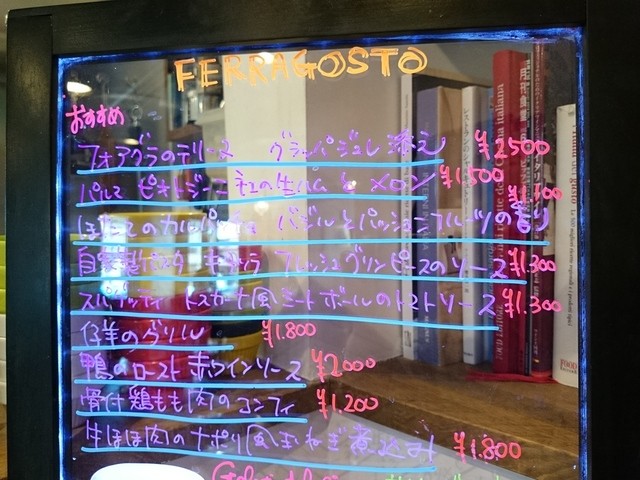 FERRAGOSTO
おすすめ
フォアグラのテリーヌ グラッパジュレ添え ¥2500
パルマ ピオトジーニ社の生ハムとメロン ¥1500
ほたてのカルパッチョ バジルとパッションフルーツの香り
自家製パスタ キタッラ フレッシュグリンピースのソース ¥1.300
スパゲッティ トスカーナ風ミートボールのトマトソース ¥1.300
仔羊のグリル ¥1.800
鴨のロースト 赤ワインソース ¥2000
骨付鶏もも肉のコンフィ ¥1.200
牛ほほ肉のナポリ風玉ねぎ煮込み ¥1.800